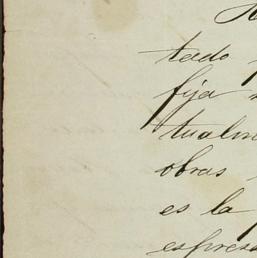 tado
fija
tualm
obras
es la
espresa